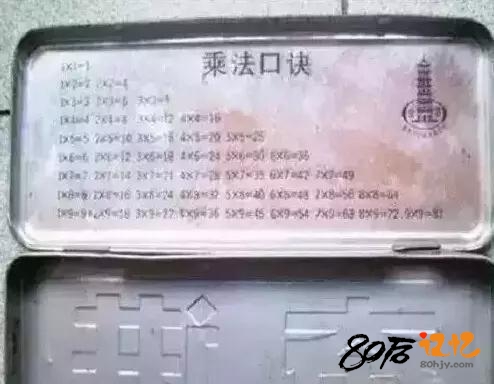 乘法口诀
1×1=1
1×2=2 2×2=4
1×3=3 2×3=6 3×3=9
1×4=4 2×4=8 3×4=12 4×4=16
1×5=5 2×5=10 3×5=15 4×5=20 5×5=25
1×6=6 2×6=12 3×6=18 4×6=24 5×6=30 6×6=36
1×7=7 2×7=14 3×7=21 4×7=28 5×7=35 6×7=42 7×7=49
1×8=8 2×8=16 3×8=24 4×8=32 5×8=40 6×8=48 7×8=56 8×8=64
1×9=9 2×9=18 3×9=27 4×9=36 5×9=45 6×9=54 7×9=63 8×9=72 9×9=81
80后记忆
80hjy.com